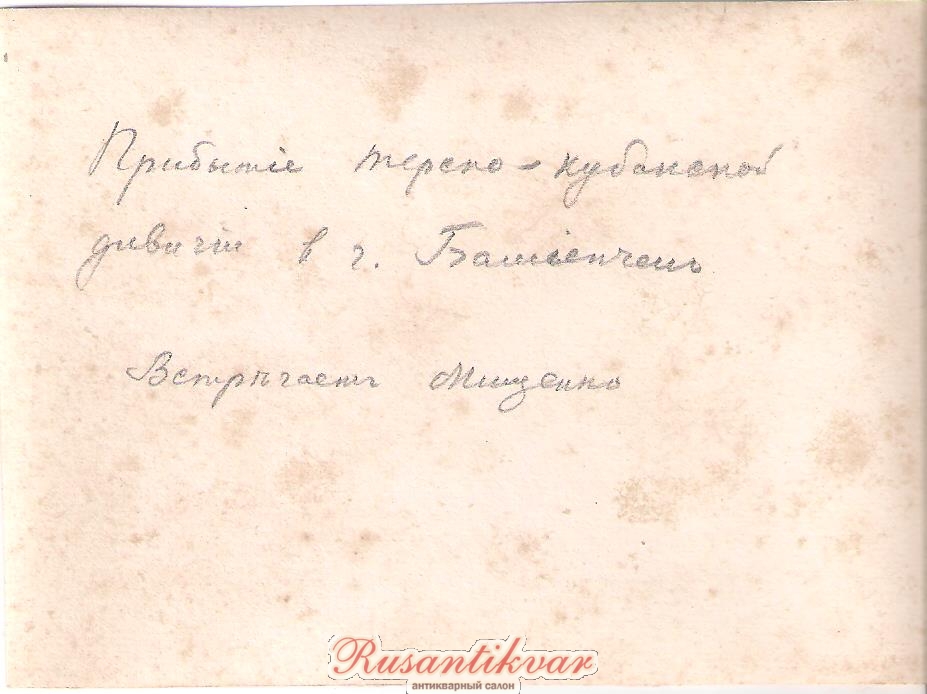 Прибытіе терско-кубанской
дивизіи в г.
Встрѣчаетъ Мищенко
Rusantikvar
антикварный салон